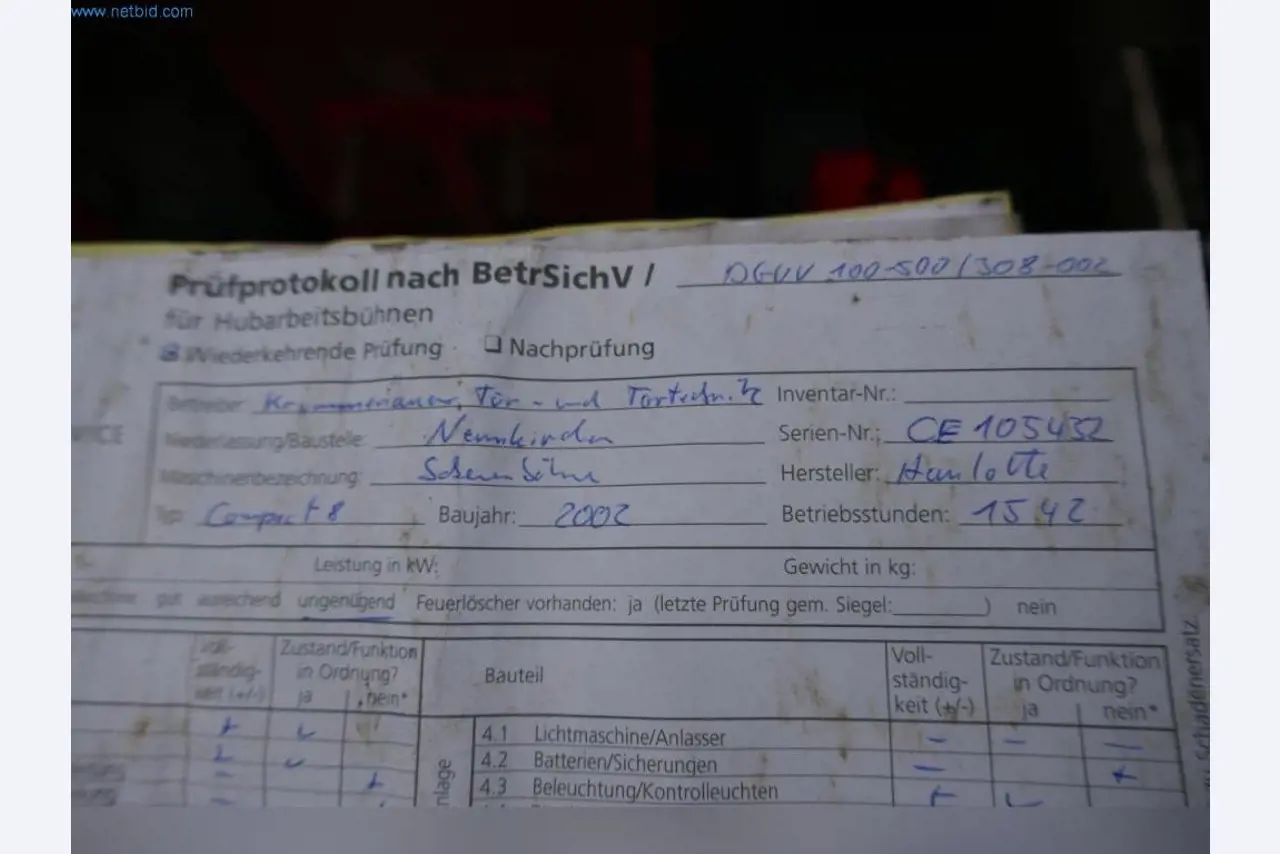 www.netbid.com
Prüfprotokoll nach BetrSichV / DGUV 100-500/308-002
für Hubarbeitsbühnen
Wiederkehrende Prüfung Nachprüfung
Betreiber: Tür- und Inventar-Nr.:
Niederlassung/Baustelle: Neunkirchen Serien-Nr.: CE 105432
Maschinenbezeichnung: Hersteller: Haulotte
Typ: Compact 8 Baujahr: 2002 Betriebsstunden: 1542
Leistung in kW: Gewicht in kg:
gut ausreichend ungenügend Feuerlöscher vorhanden: ja (letzte Prüfung gem. Siegel: ) nein
Voll- Zustand/Funktion Voll- Zustand/Funktion
ständig- in Ordnung? Bauteil ständig- in Ordnung?
keit (+/-) ja nein* keit (+/-) ja nein*
4.1 Lichtmaschine/Anlasser - - -
4.2 Batterien/Sicherungen - +
4.3 Beleuchtung/Kontrolleuchten +
Schadenersatz